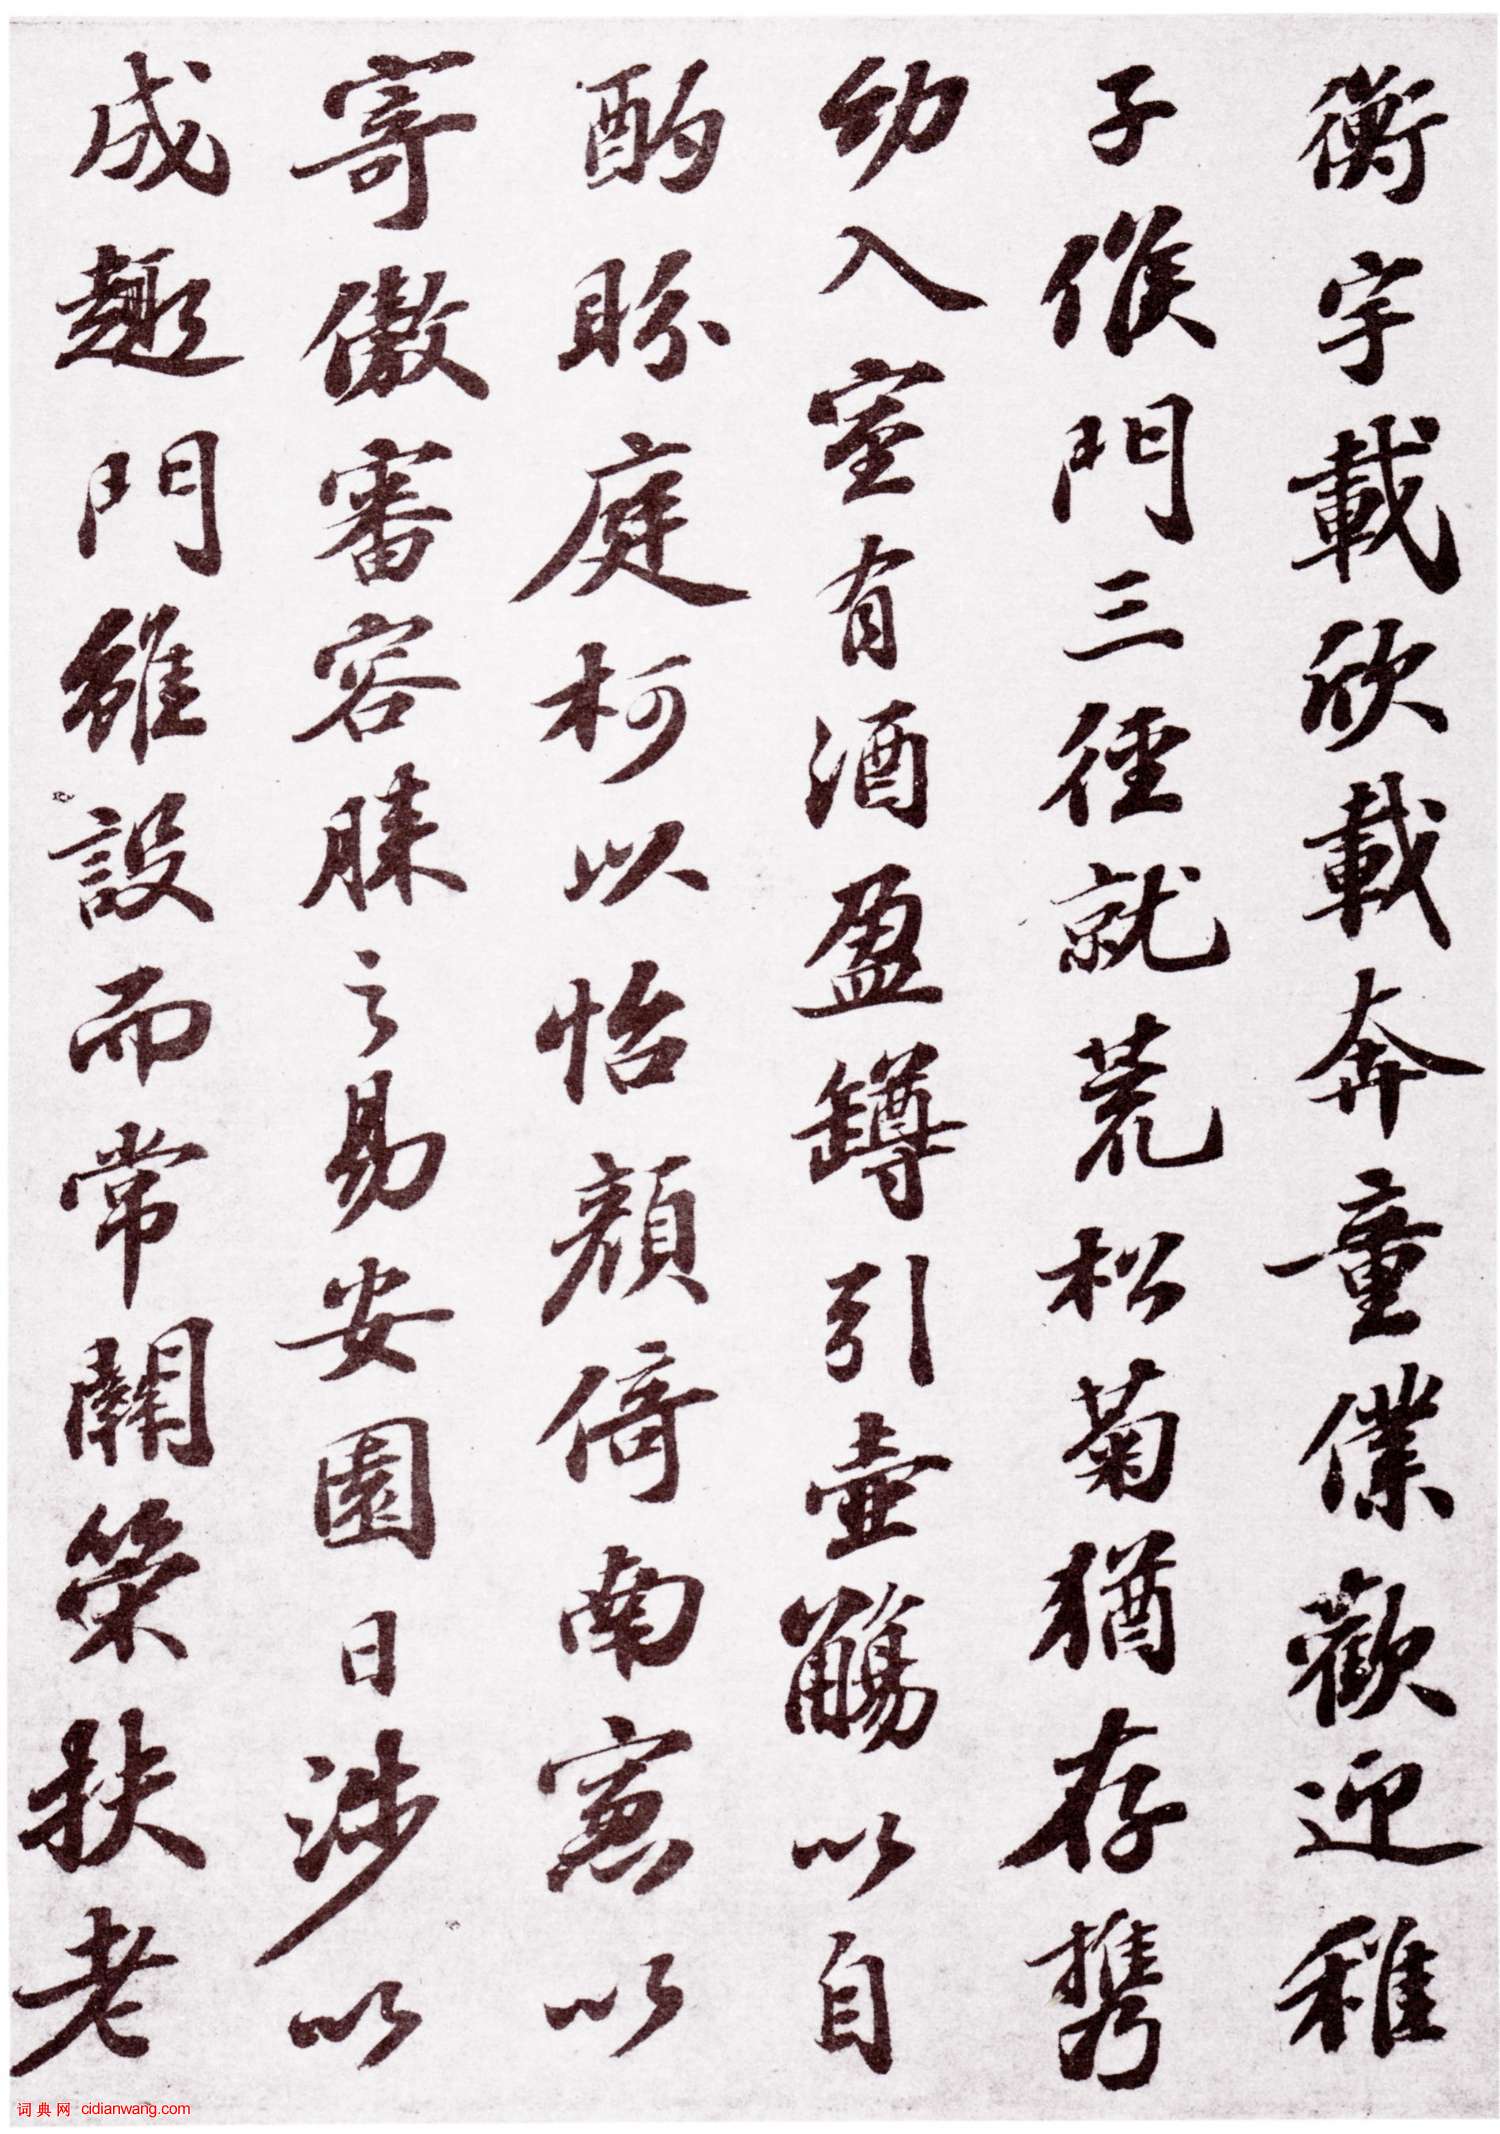 衡宇載欣載奔童僕歡迎稚
子候門三徑就荒松菊猶存携
幼入室有酒盈罇引壺觴以自
酌眄庭柯以怡顏倚南窻以
寄傲審容膝之易安園日涉以
成趣門雖設而常關策扶老
词典网 cidianwang.com